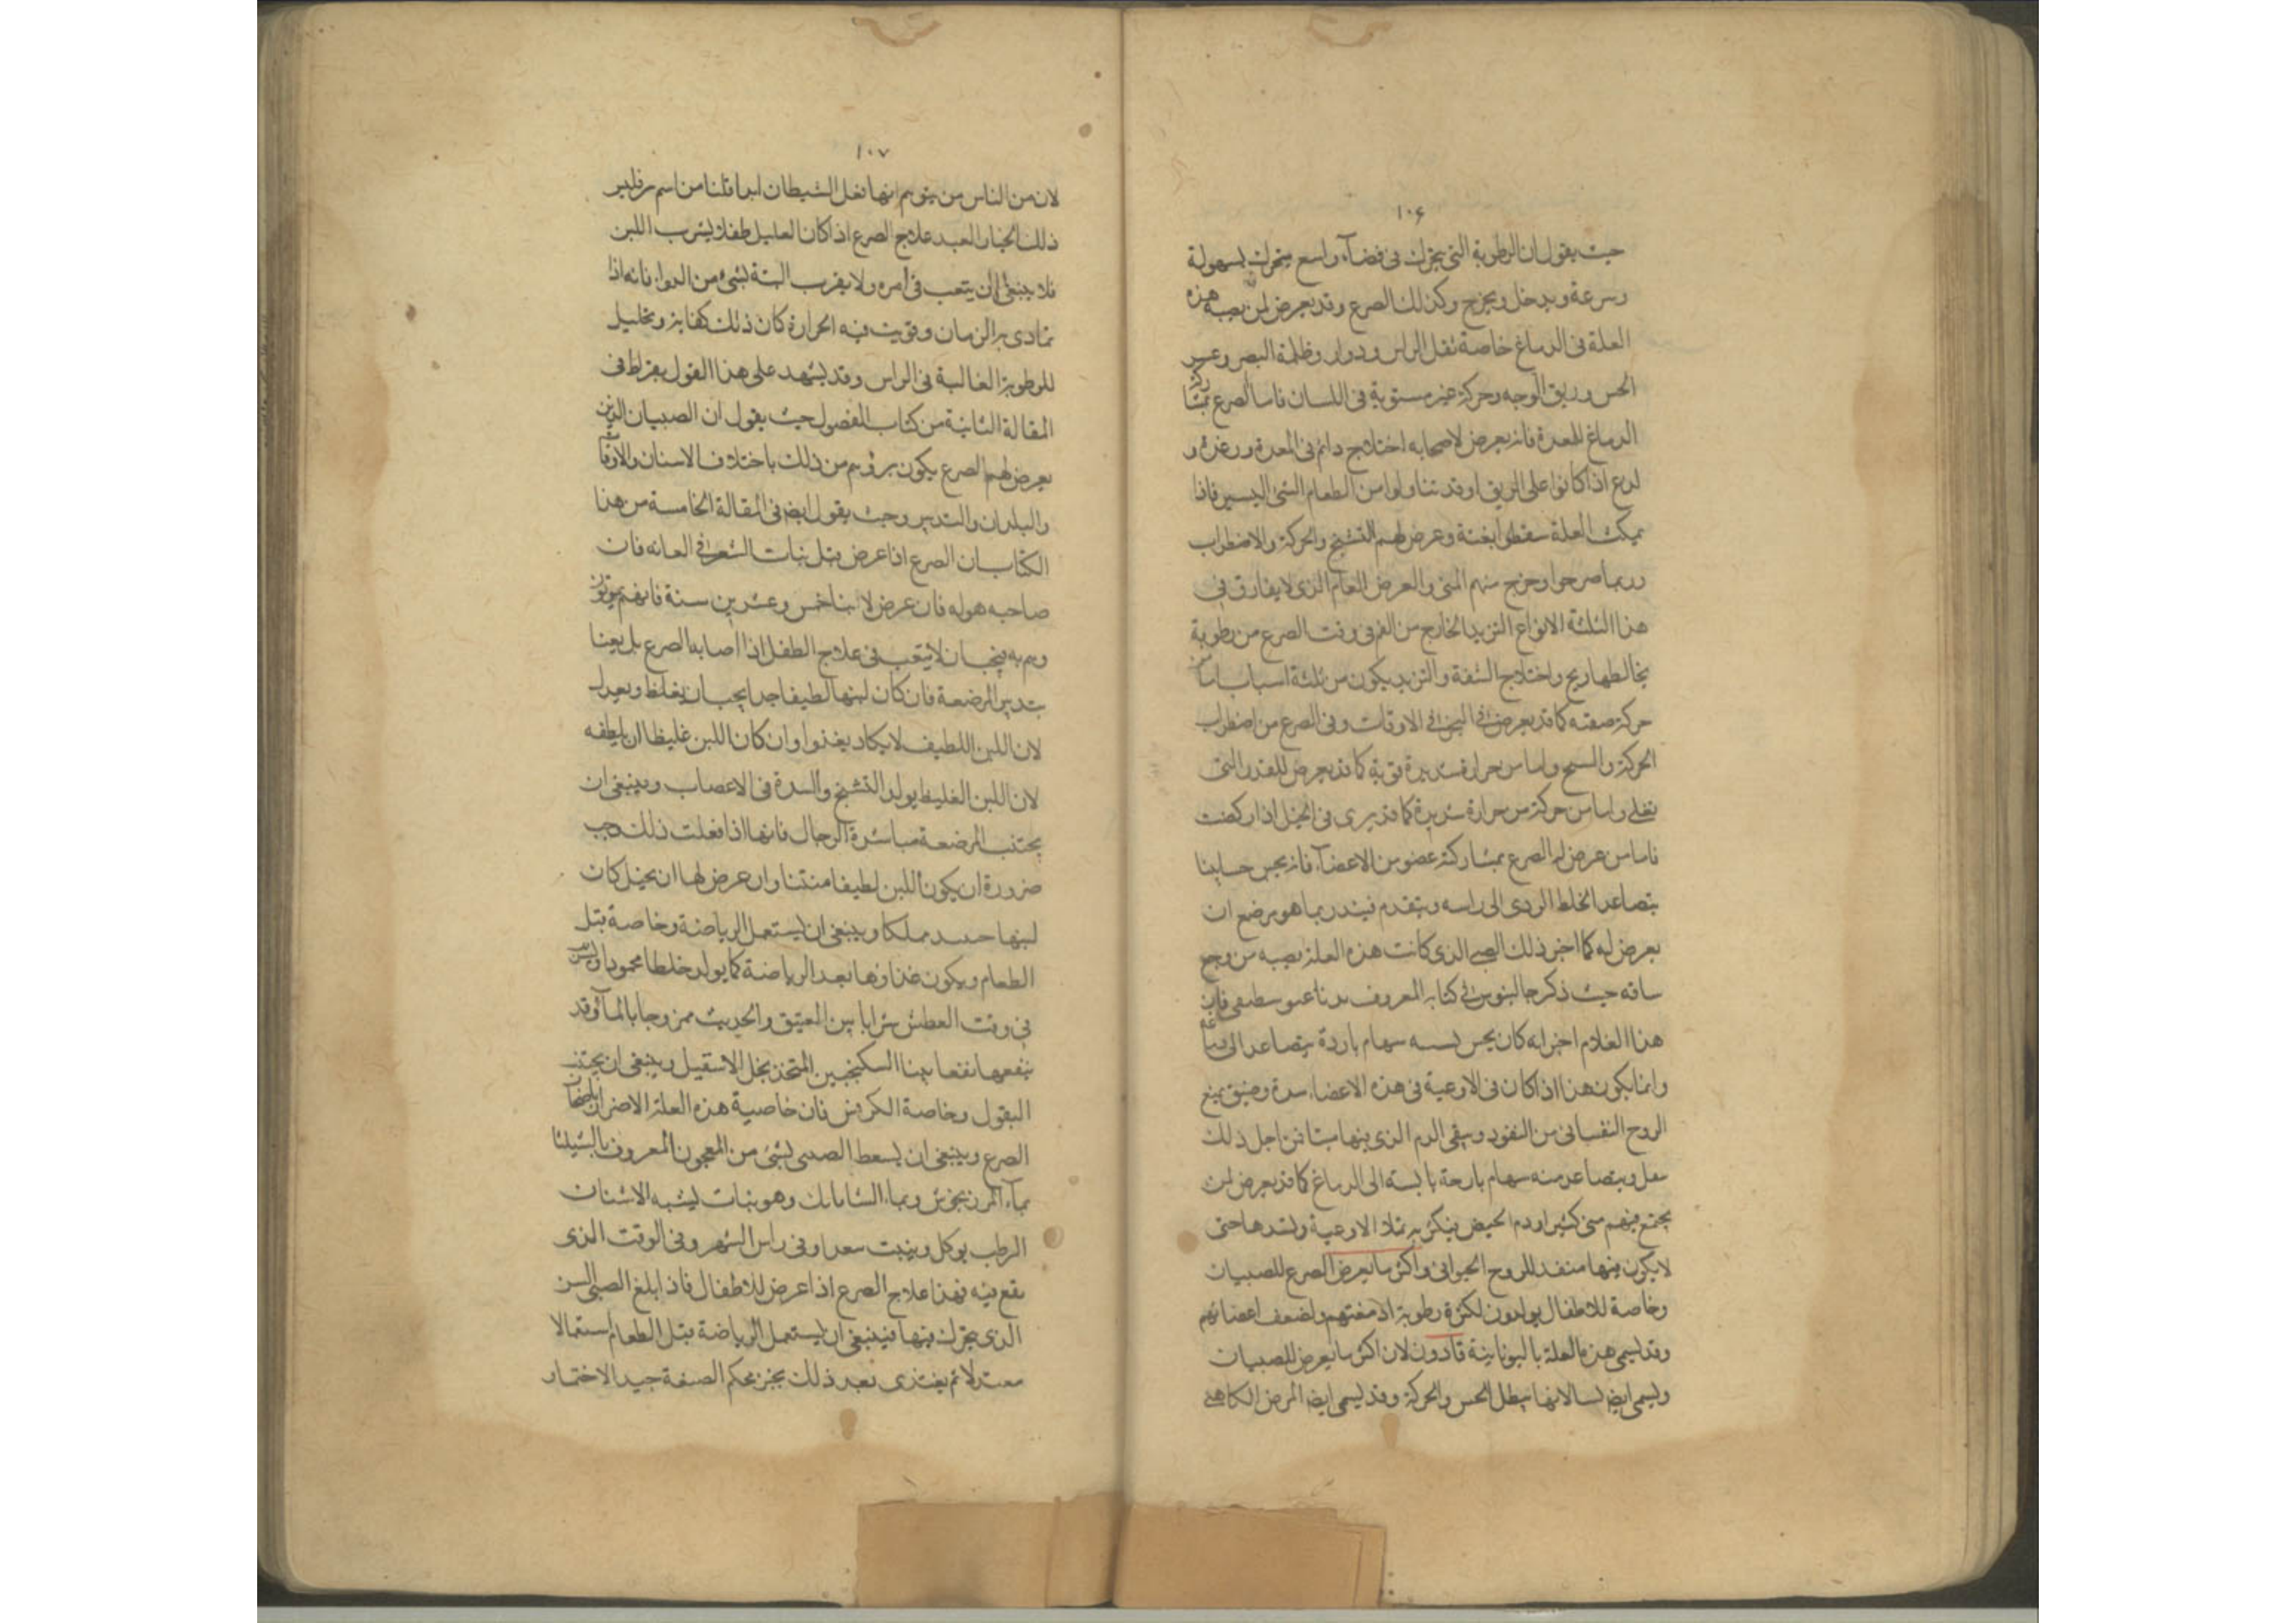 ١٠۶
حيث يقول ان الرطوبة التى يتحرك فى فضآء واسع يتحرك بسهولة
وسرعة ويدخل ويخرج وكذلك الصرع وقد يعرض لمن يصيبه هذه
العلة فى الدماغ خاصة ثقل الراس ودوار وظلمة البصر وعسر
الحس وريق الوجه وحركة غير مستوية فى اللسان فاما الصرع
الدماغ للمعدة فانه يعرض لاصحابه اختلاج دائم فى المعدة ورعدة و
لدع اذا كانوا على الريق او قد تناولوا من الطعام الشئ اليسير فاذا
العلة سقطوا بغتة وعرض لهم التشنج والحركة والاضطراب
وربما صرخوا وخرج منهم المنى والعرض العام الذى لا يفارق فى
هذا الثلثة الانواع التزبد الخارج من الفم فى وقت الصرع من رطوبة
يخالطها ريح واختلاج الشفة والتزبد يكون من ثلثة اسباب اما من
حركة كما قد يعرض فى الاوقات وفى الصرع من اضطراب
الحركة و واما من حرارة شديدة قوية كما قد يعرض للقدر التى
تغلى واما من حركة من حرارة شديدة كما قد يرى فى الخيل اذا ركضت
فاما من عرض له الصرع بمشاركة عضو من الاعضآء فانه يحس
يتصاعد الخلط الردى الى راسه ويتقدم فينذر بما هو مزمع ان
يعرض له كما اخبر ذلك الصبى الذى كانت هذه العلة تصيبه من وجع
ساقه حيث ذكر جالينوس فى كتابه المعروف فان
هذا الغلام اخبر انه كان يحس سهام باردة يتصاعد الى
وانما يكون هذا اذا كان فى الاوعية فى هذه الاعضاء سدة وضيق يمنع
الروح النفسانى من النفوذ ويبقى الدم الذى فيها ميتا فمن اجل ذلك
ويتصاعد منه سهام الى الدماغ كما قد يعرض لمن
يجتمع فيهم منى كثير او دم الحيض فيكثر تملا الاوعية ويسدها حتى
لا يكون فيها منفذ للروح الحيوانى واكثر ما يعرض الصرع للصبيان
وخاصة للاطفال يولدون لكثرة رطوبة ادمغتهم ولضعف اعضائهم
وقد يسمى هذه العلة باليونانية قادون لان اكثر ما يعرض للصبيان
ويسمى ايضا لانها يبطل الحس والحركة وقد يسمى ايضا المرض الكاهنى
١٠٧
لان من الناس من يتوهم انها فعل الشيطان
ذلك علاج الصرع اذا كان العليل طفلا يشرب اللبن
فلا ينبغى ان يتعب فى امره ولا يقرب البتة بشئ من الدواء فانه اذا
تمادى به الزمان وقويت فيه الحرارة كان ذلك كفاية وتحليل
للرطوبة الغالبة فى الراس وقد يشهد على هذا القول بقراط فى
المقالة الثانية من كتاب الفصول حيث يقول ان الصبيان الذين
يعرض لهم الصرع يكون برؤهم من ذلك باختلاف الاسنان والاوقات
والبلدان والتدبير وحيث يقول ايضا فى المقالة الخامسة من هذا
الكتاب ان الصرع اذا عرض قبل نبات الشعر فى العانة فان
صاحبه فان عرض لابنا خمس وعشرين سنة فانهم يموتون
وهم به فيجب ان لا يتعب فى علاج الطفل اذا اصابه الصرع بل
بتدبير المرضعة فان كان لبنها لطيفا جدا يجب ان يغلظ ويعدل
لان اللبن اللطيف لا يكاد يغذوا وان كان اللبن غليظا ان يلطفه
لان اللبن الغليظ يولد التشنج والسدة فى الاعصاب وينبغى ان
يجتنب المرضعة مباشرة الرجال فانها اذا فعلت ذلك وجب
ضرورة ان يكون اللبن لطيفا منتنا وان عرض لها ان يحبل كان
لبنها وينبغى ان يستعمل الرياضة وخاصة قبل
الطعام ويكون غذاؤها بعد الرياضة كما يولد خلطا محمودا
فى وقت العطش شرابا بين العتيق والحديث ممزوجا بالمآء وقد
ينفعها نفعا بينا السكنجبين المتخذ بخل الاسقيل وينبغى ان يجتنب
البقول وخاصة الكرفس فان خاصية هذه العلة الاضرار
الصرع وينبغى ان يسعط الصبى بشئ من المعجون المعروف
بمآء المرزنجوش وبماء الشابابك وهو نبات يشبه الاشنان
الرطب يوكل وينبت وفى راس الشهر وفى الوقت الذى
يقع فيه فهذا علاج الصرع اذا عرض للاطفال فاذا بلغ الصبى السن
الذى يتحرك فيها فينبغى ان يستعمل الرياضة قبل الطعام استعمالا
معتدلا ثم يغتذى بعد ذلك بخبز محكم الصنعة جيد الاختمار